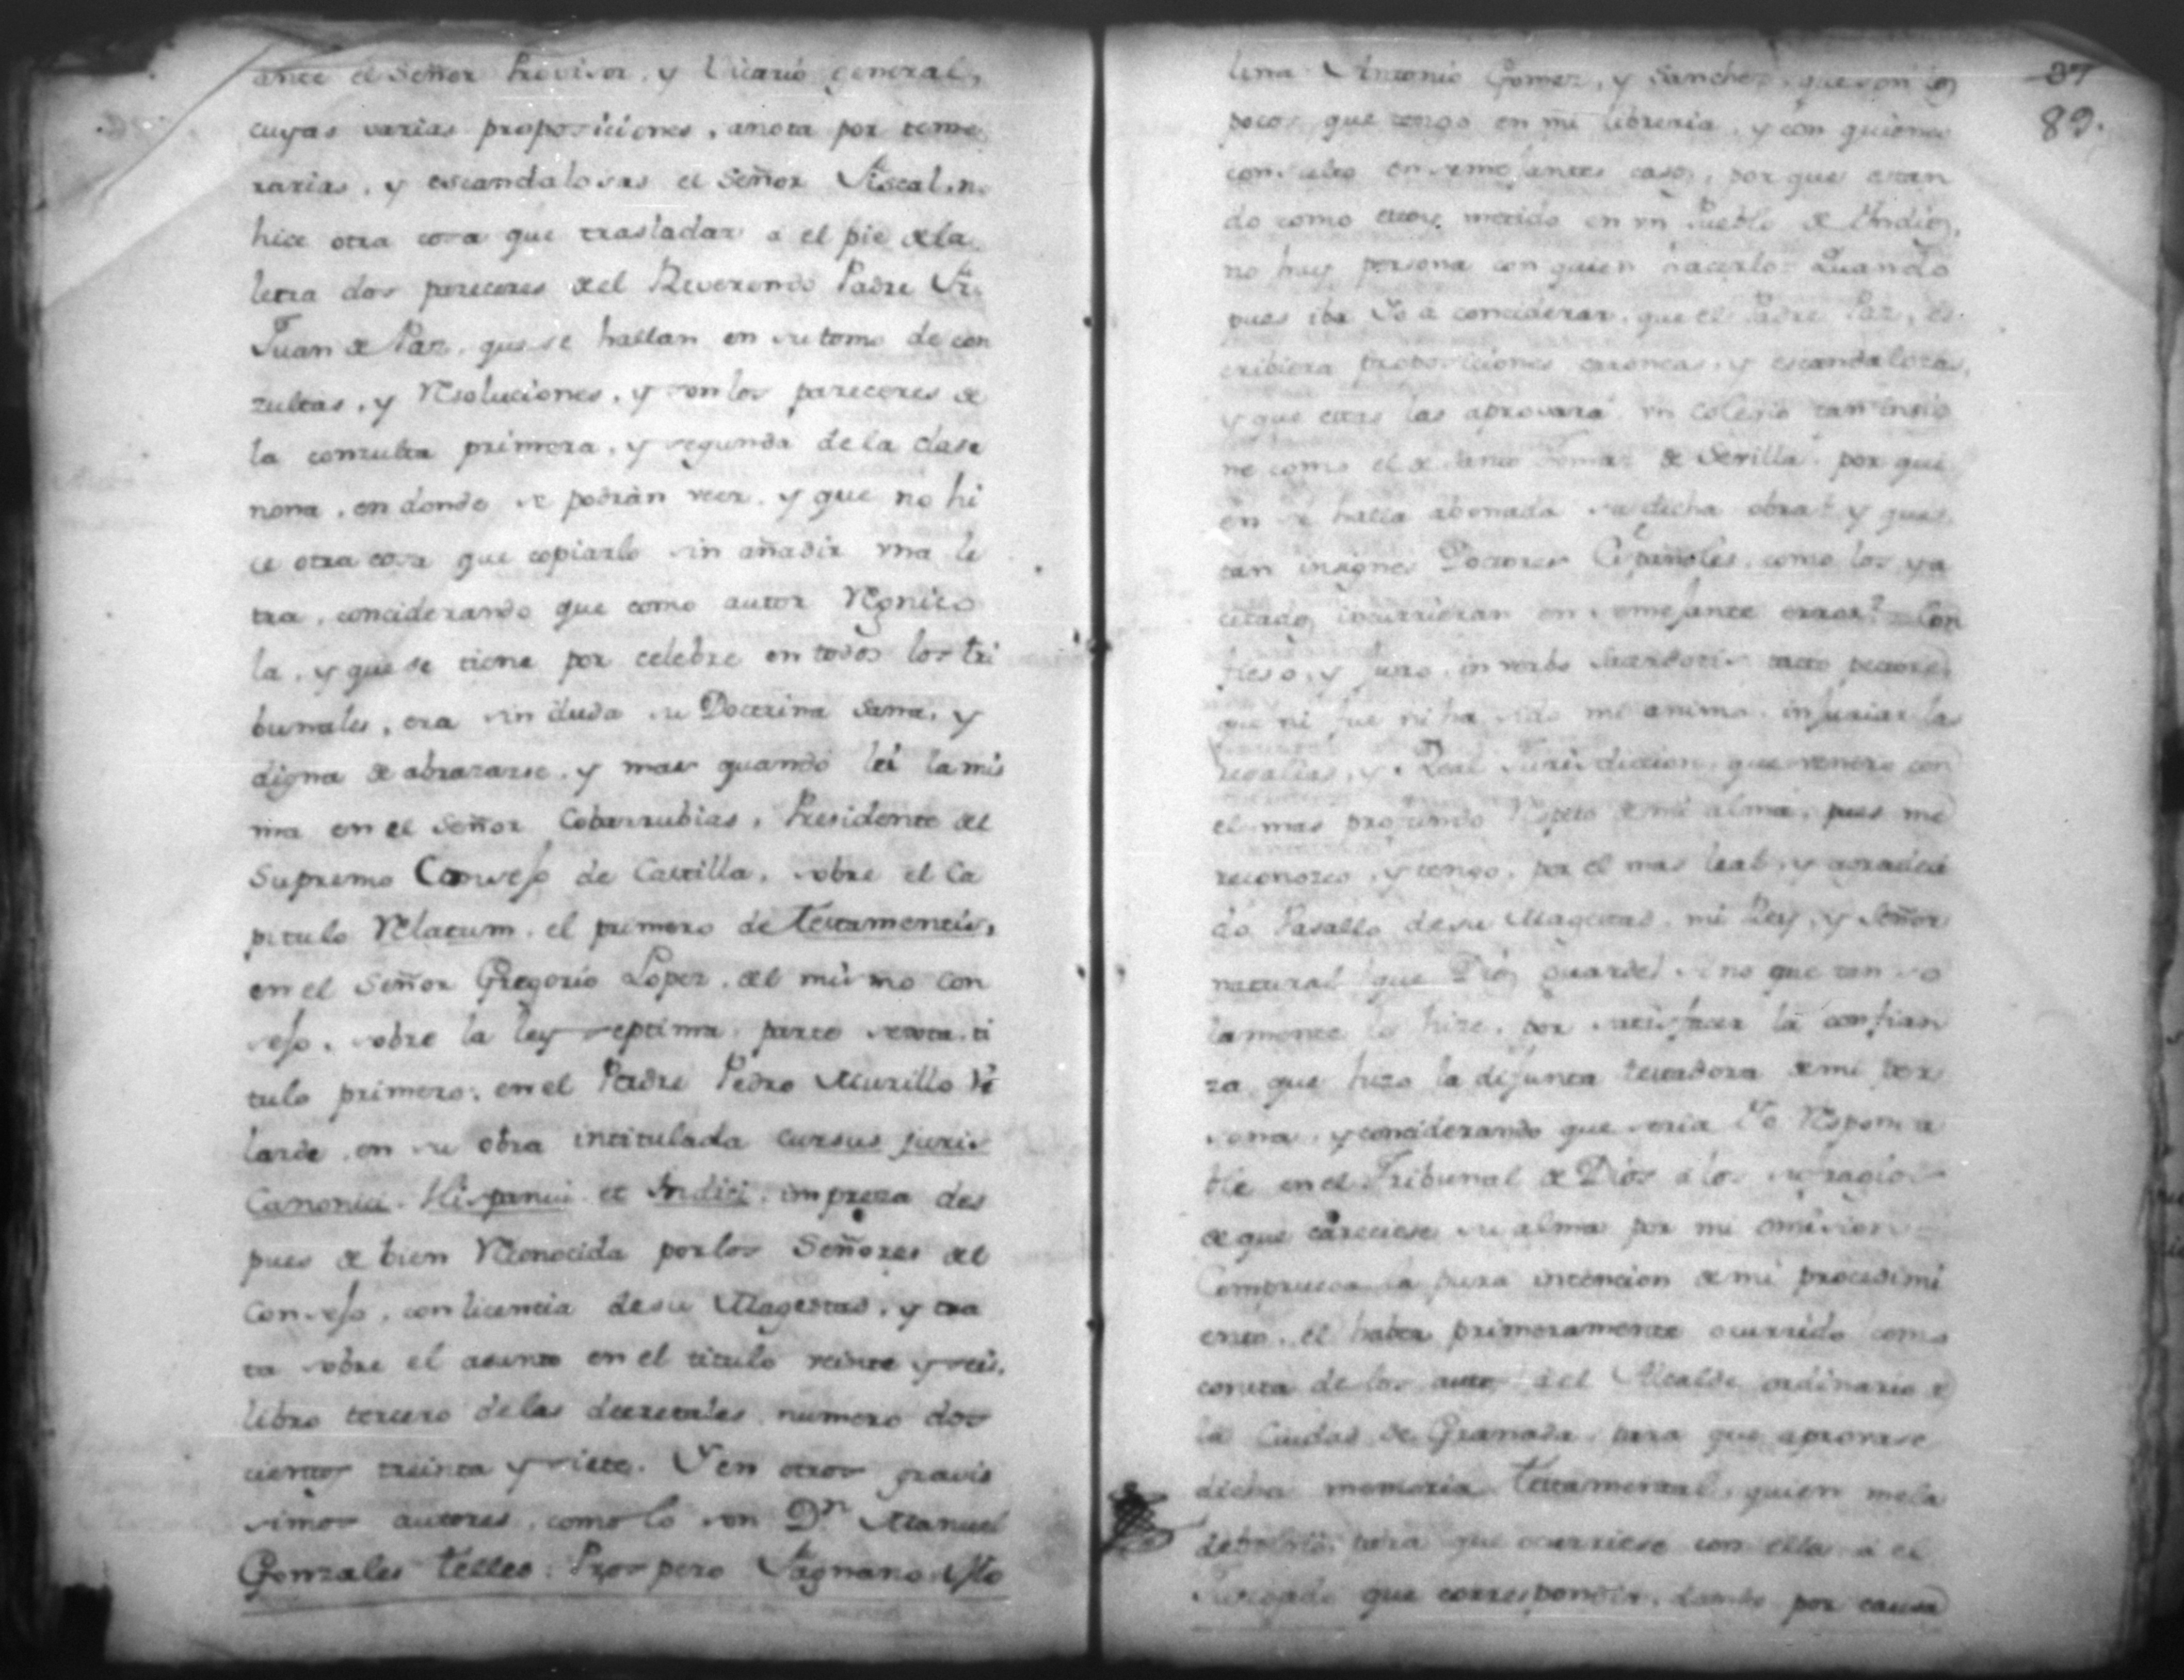 ante el Señor Provisor, y Vicario general,
cuyas varias proposiciones, anota por teme
rarias, y escandalosas el Señor Fiscal, no
hice otra cosa que trasladar a el pie dela
letra dos pareceres del Reverendo Padre Fr.
Juan de Paz, que se hallan en su tomo de con
zultas, y Resoluciones, y son los pareceres de
la conzulta primera, y segunda de la clase
nona, en donde se podràn veer, y que no hi
ce otra cosa que copiarlo sin añadir vna le
tra, conciderando que como autor Regnico
la, y que se tiene por celebre en todos los tri
bunales, era sin duda su Doctrina sana, y
digna de abrazarse, y mas quando lei la mis
ma en el Señor Cobarrubias, Presidente del
Supremo Consejo de Castilla, sobre el Ca
pitulo Relatum, el primero de testamentis,
en el Señor Gregorio Lopez, del mismo Con
sejo, sobre la ley septima, parte sexta, ti
tulo primero; en el Padre Pedro Murillo Ve
larde, en su obra intitulada cursus juris
Canonici, Hispanii et Indici, impreza des
pues de bien Reconocida por los Señores del
Consejo, con licencia de su Magestad, y tra
ta sobre el asunto en el titulo veinte y seis,
libro tercero delas decretales, numero dos
cientos treinta y siete. Y en otros gravis
simos autores, como lo son Dn. Manuel
Gonzales telles: Prospero Fagnano, Mo
37
89.
lina Antonio Gomez, y Sanchez, que son los
pocos que tengo en mi libreria, y con quienes
consulto en semejantes casos, por que estan
do como estoy metido en vn Pueblo de Yndios,
no hay persona con quien hacerlo. Quando
pues iba Yo a conciderar, que el Padre Paz, es
cribiera proposiciones erroneas, y escandalozas,
y que estas las aprovara vn Colegio tan insig
ne como el de Santo Tomas de Sevilla, por qui
en se halla abonada su dicha obra? y que
tan insignes Doctores Españoles, como los ya
citados incurrieran en semejante error? Con
fieso, y juro, in verbo Sacerdotis tacto pectore,
que ni fue ni ha sido mi animo, injuriar las
regalias, y Real Jurisdiccion, que venero con
el mas profundo Respeto de mi alma, pues me
reconozco, y tengo, por el mas leal, y agradeci
do Vasallo de su Magestad, mi Rey, y Señor
natural (que Dios guarde) sino que tan so
lamente lo hize, por satisfacer la confian
za que hizo la difunta testadora de mi per
sona, y conciderando que seria Yo Responsa
ble en el Tribunal de Dios a los sufragios
de que careciese su alma por mi omision
Comprueva la pura intencion de mi procedimi
ento, el haver primeramente ocurrido como
consta de los autos, a el Alcalde ordinario de
la Ciudad de Granada, para que aprovase
dicha memoria testamental, quien me la
debolvio, para que ocurriese con ella a el
Jusgado que correspondia, dando por causa